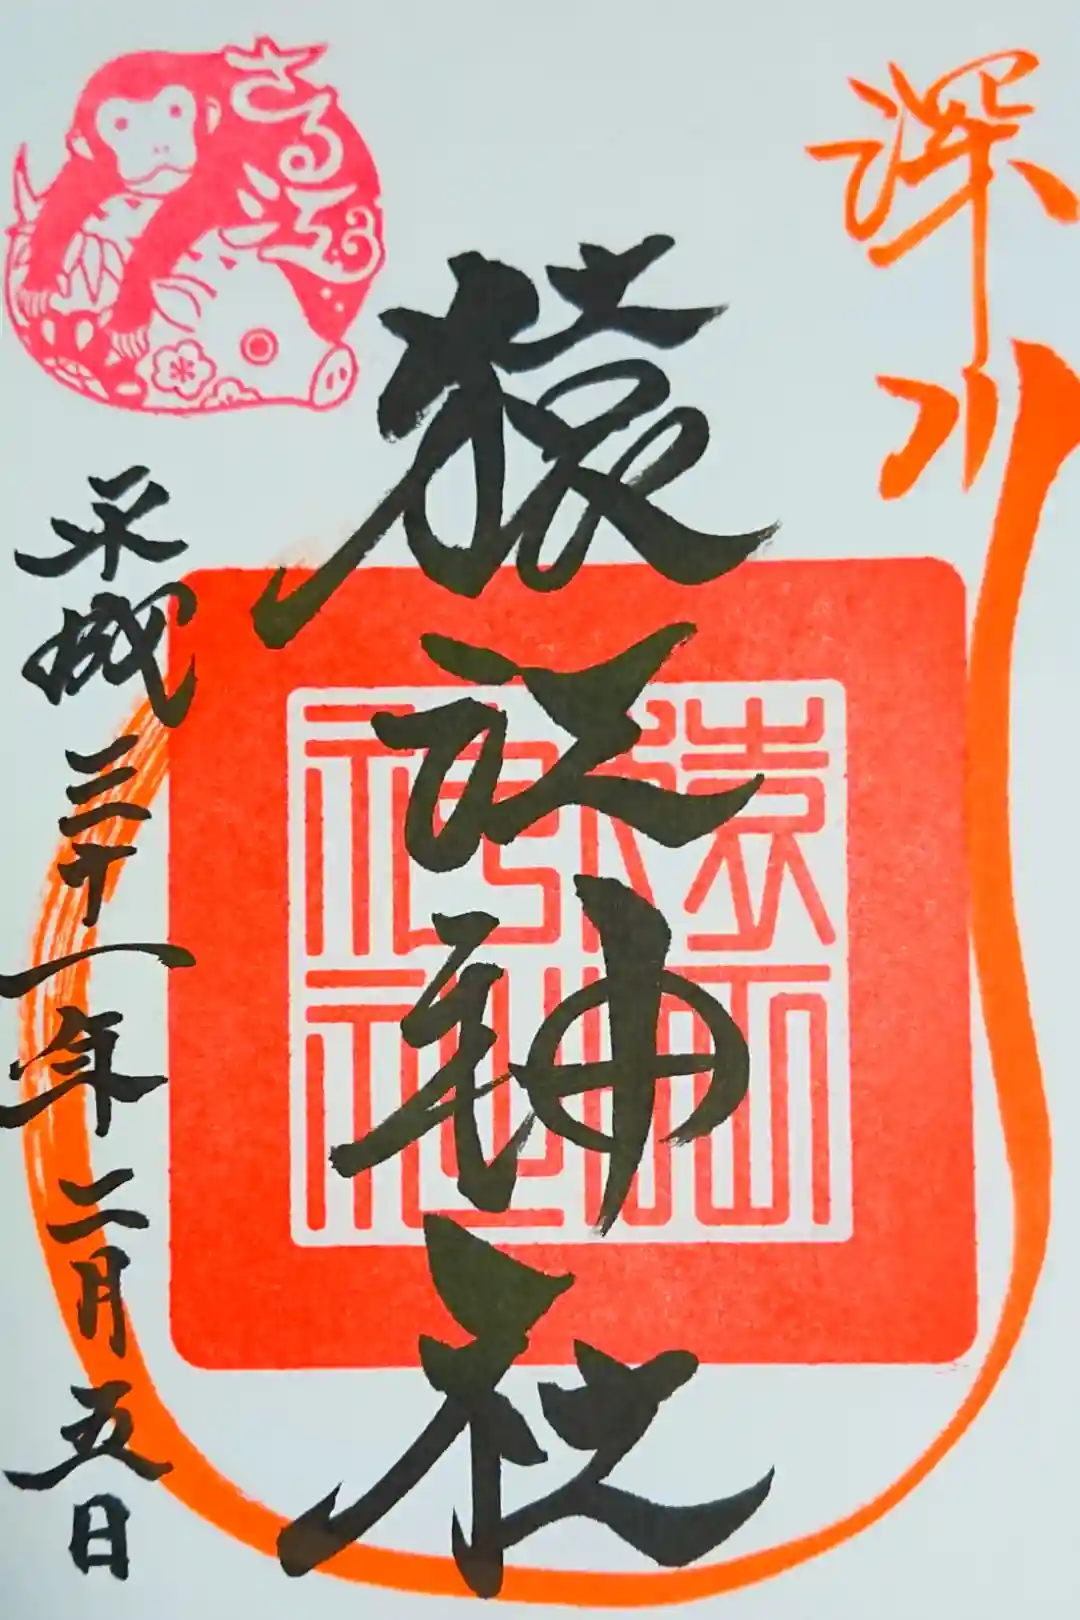 深川
猿江神社
猿江
神社
さる江
平成三十一年二月五日